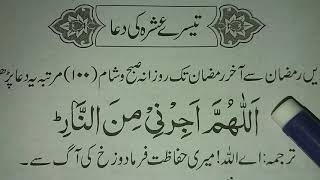 تیسرے عشرہ کی دعا
یں رمضان سے آخر رمضان تک روزانہ صبح و شام (۱۰۰) مرتبہ یہ دعا پڑھ
اَللّٰهُمَّ اَجِرْنِیْ مِنَ النَّارِ ط
ترجمہ: اے اللہ! میری حفاظت فرما دوزخ کی آگ سے۔